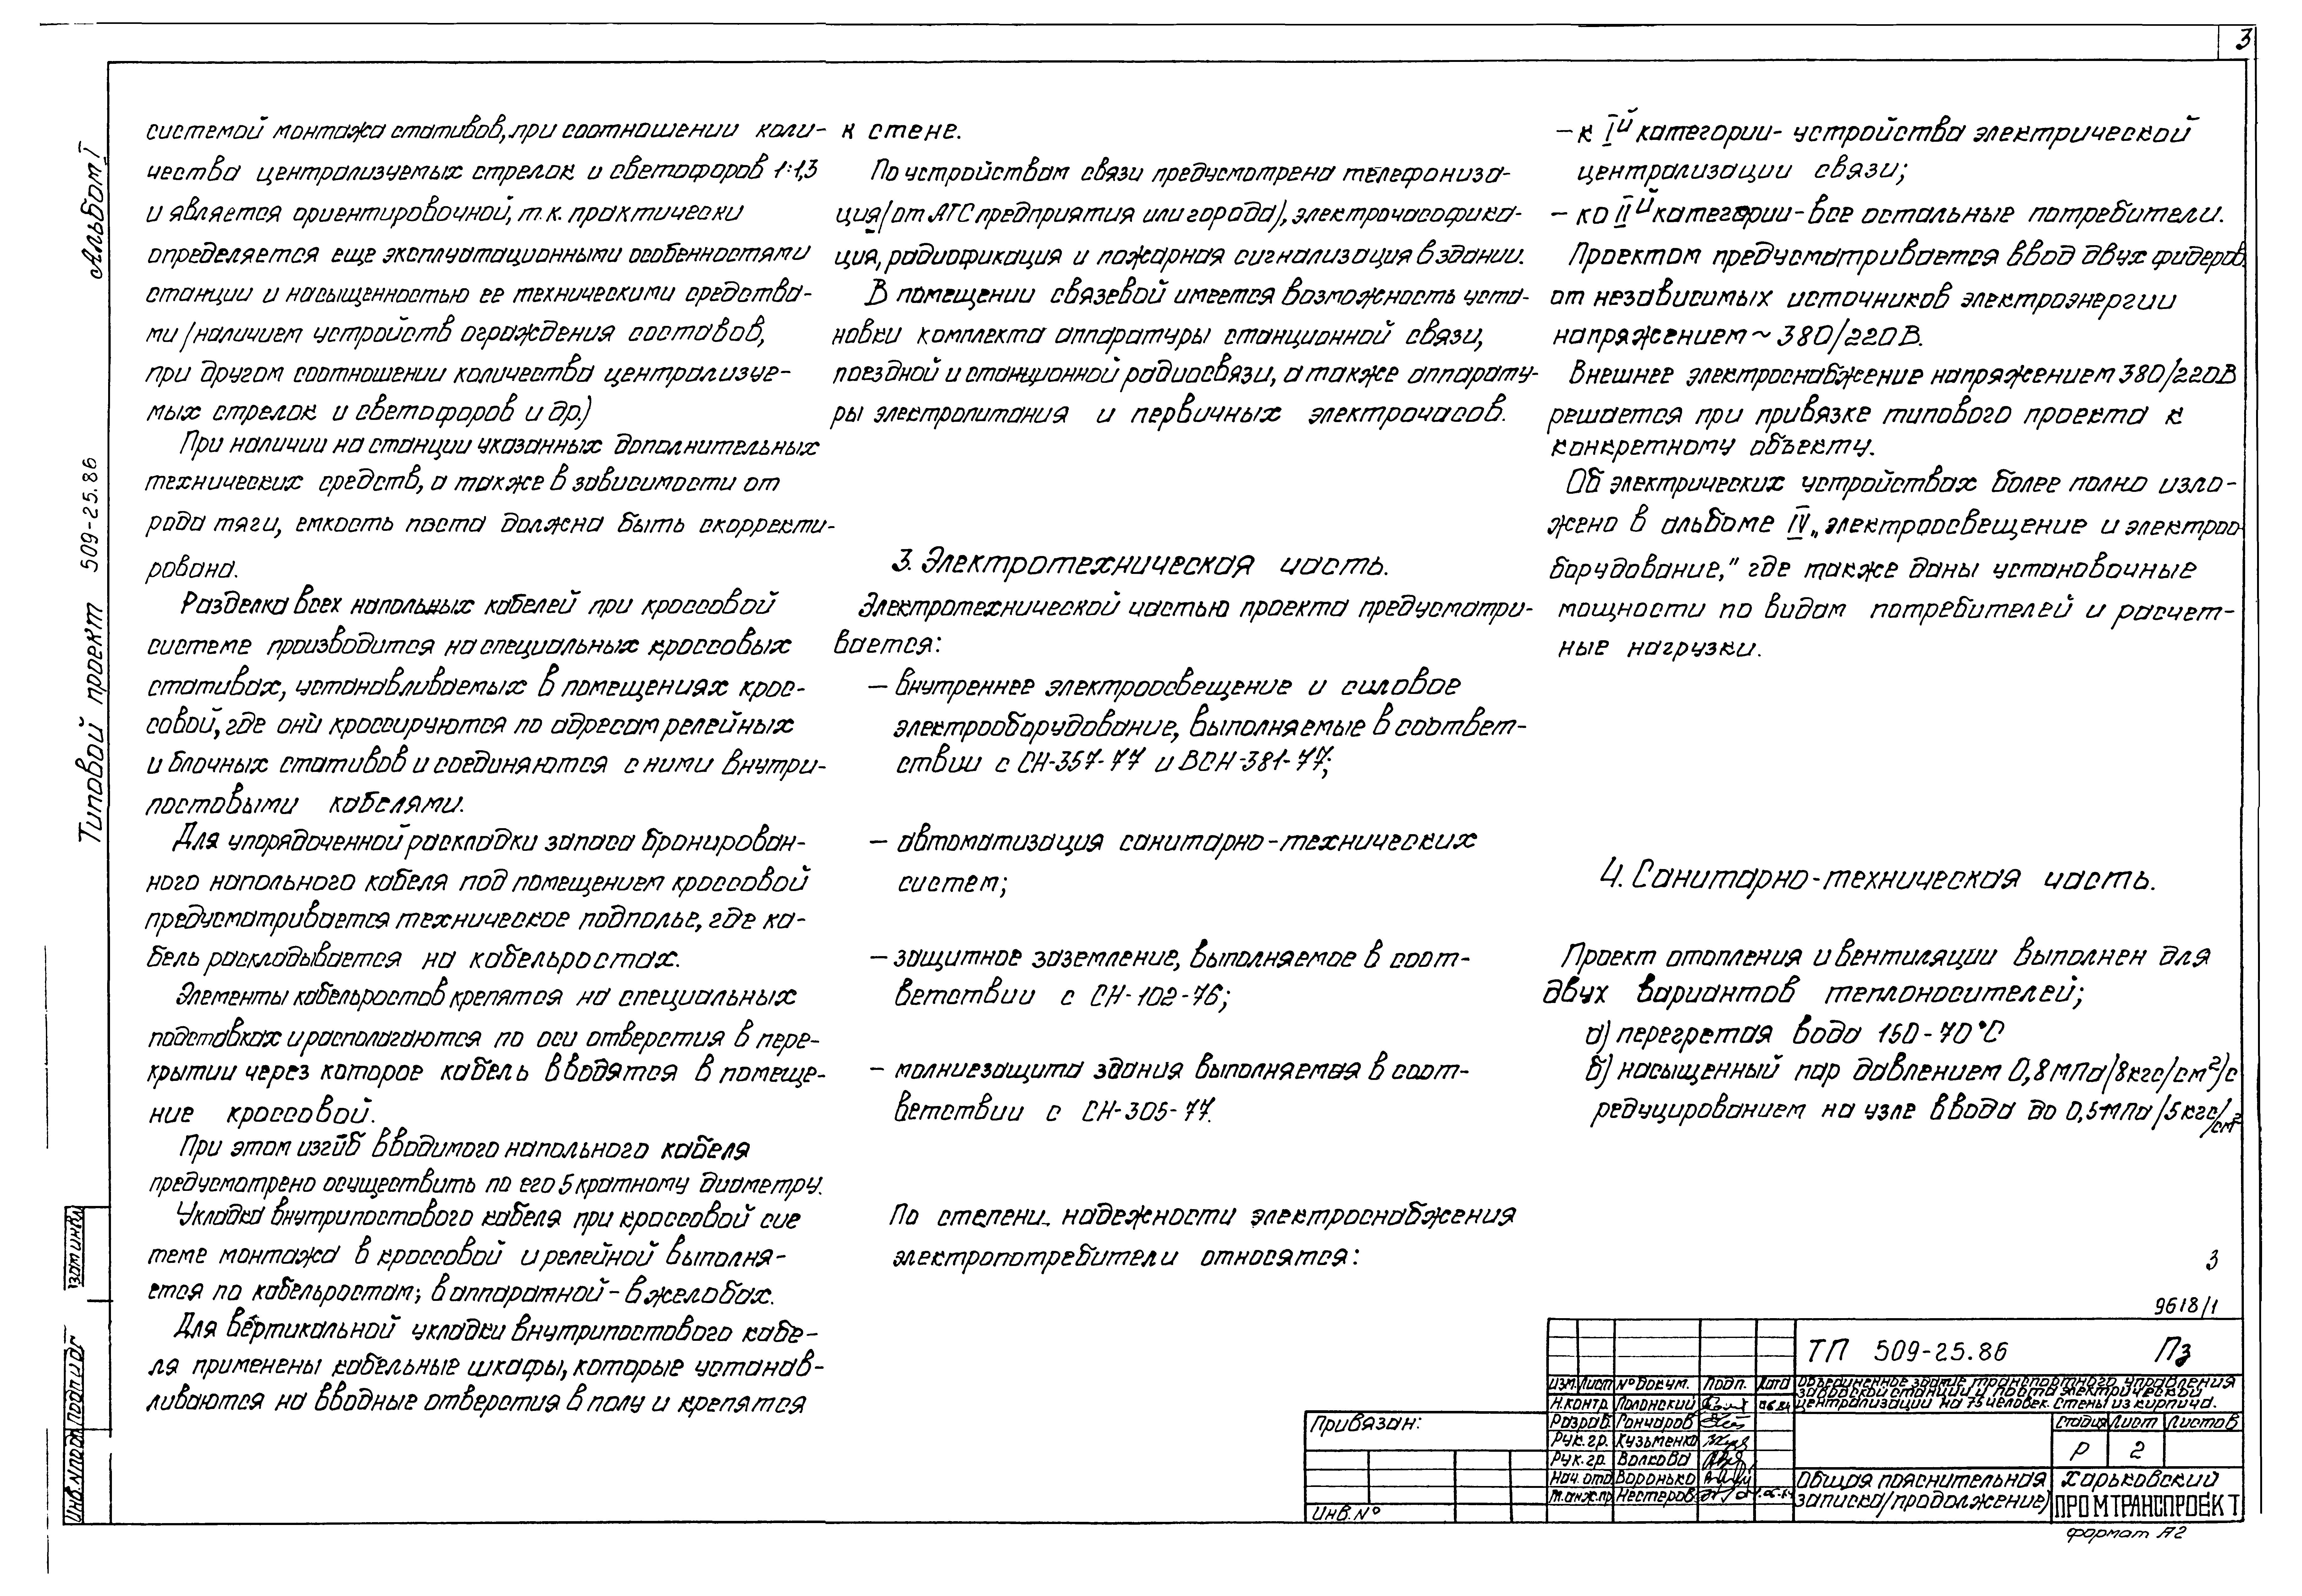 3
Альбом I
Типовой проект 509-25.86
системой монтажа стативов, при соотношении коли-
чества централизуемых стрелок и светофоров 1:1,3
и является ориентировочной, т.к. практически
определяется еще эксплуатационными особенностями
станции и насыщенностью ее техническими средства-
ми (наличием устройств ограждения составов,
при другом соотношении количества централизуе-
мых стрелок и светофоров и др.)
При наличии на станции указанных дополнительных
технических средств, а также в зависимости от
рода тяги, емкость поста должна быть скорректи-
рована.
Разделка всех напольных кабелей при кроссовой
системе производится на специальных кроссовых
стативах, устанавливаемых в помещениях крос-
совой, где они кроссируются по адресам релейных
и блочных стативов и соединяются с ними внутри-
постовыми кабелями.
Для упорядоченной раскладки запаса бронирован-
ного напольного кабеля под помещением кроссовой
предусматривается техническое подполье, где ка-
бель раскладывается на кабельростах.
Элементы кабельростов крепятся на специальных
подставках и располагаются по оси отверстия в пере-
крытии через которое кабель вводятся в помеще-
ние кроссовой.
При этом изгиб вводимого напольного кабеля
предусмотрено осуществить по его 5 кратному диаметру.
Укладка внутрипостового кабеля при кроссовой сис
теме монтажа в кроссовой и релейной выполня-
ется по кабельростам; в аппаратной - в желобах.
Для вертикальной укладки внутрипостового кабе-
ля применены кабельные шкафы, которые устанав-
ливаются на вводные отверстия в полу и крепятся
к стене.
По устройствам связи предусмотрена телефониза-
ция (от АТС предприятия или города), электрочасофика-
ция, радиофикация и пожарная сигнализация в здании.
В помещении связевой имеется возможность уста-
новки комплекта аппаратуры станционной связи,
поездной и станционной радиосвязи, а также аппарату-
ры электропитания и первичных электрочасов.
3. Электротехническая часть.
Электротехнической частью проекта предусматри-
вается:
— внутреннее электроосвещение и силовое
электрооборудование, выполняемые в соответ-
ствии с СН-357-77 и ВСН-381-77;
— автоматизация санитарно-технических
систем;
— защитное заземление, выполняемое в соот-
ветствии с СН-102-76;
— молниезащита здания выполняемая в соот-
ветствии с СН-305-77.
По степени надежности электроснабжения
электропотребители относятся:
— к I й категории - устройства электрической
централизации связи;
— ко II й категории - все остальные потребители.
Проектом предусматривается ввод двух фидеров
от независимых источников электроэнергии
напряжением ~ 380/220В.
Внешнее электроснабжение напряжением 380/220В
решается при привязке типового проекта к
конкретному объекту.
Об электрических устройствах более полно изло-
жено в альбоме IV „электроосвещение и электроо
борудование," где также даны установочные
мощности по видам потребителей и расчет-
ные нагрузки.
4. Санитарно-техническая часть.
Проект отопления и вентиляции выполнен для
двух вариантов теплоносителей;
а) перегретая вода 150-70°С
б) насыщенный пар давлением 0,8 МПа (8 кгс/см²) с
редуцированием на узле ввода до 0,5 МПа (5 кгс/см²
3
9618/1
ТП 509-25.86 ПЗ
Изм. Лист № докум. Подп. Дата
Н.контр. Полонский
Разраб. Гончаров
Рук. гр. Кузьменко
Рук. гр. Волкова
Нач. отд. Воронько
Нестеров
объединенное здание транспортного управления
заводской станции и поста электрической
централизации на 75 человек. Стены из кирпича.
Стадия Лист Листов
Р 2
Общая пояснительная
записка (продолжение)
Харьковский
ПРОМТРАНСПРОЕКТ
формат А2
Привязан:
Инв. №
Взам инв.
Подп и дат
Инв. № подл